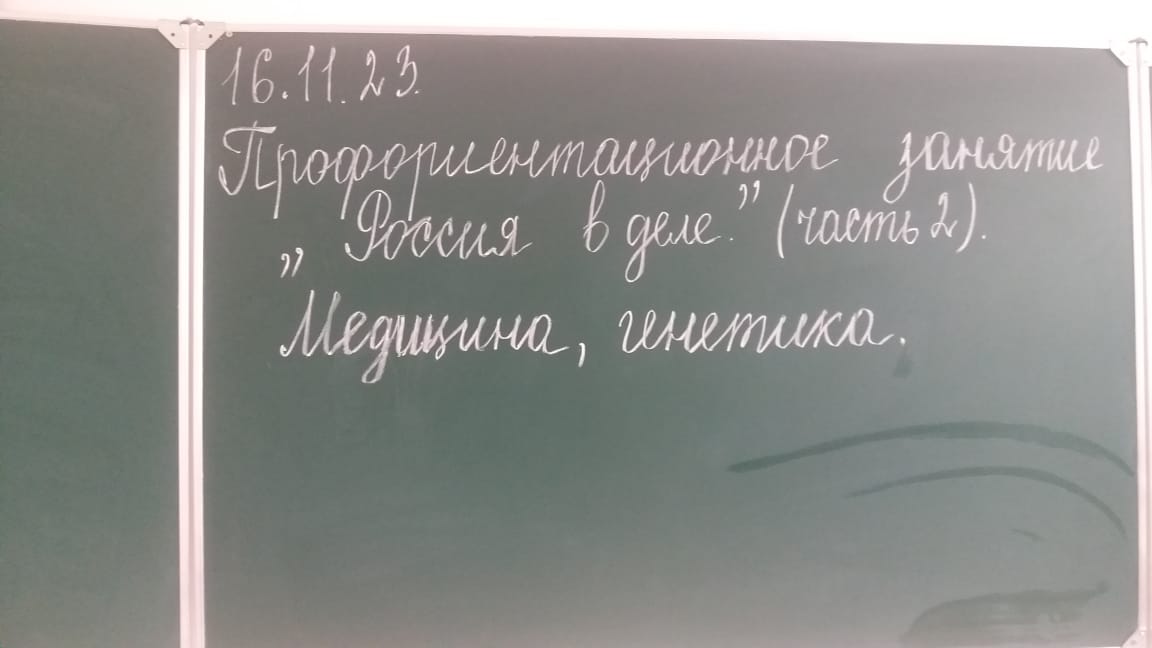 16.11.23.
Профориентационное занятие
„Россия в деле.” (часть 2).
Медицина, генетика.